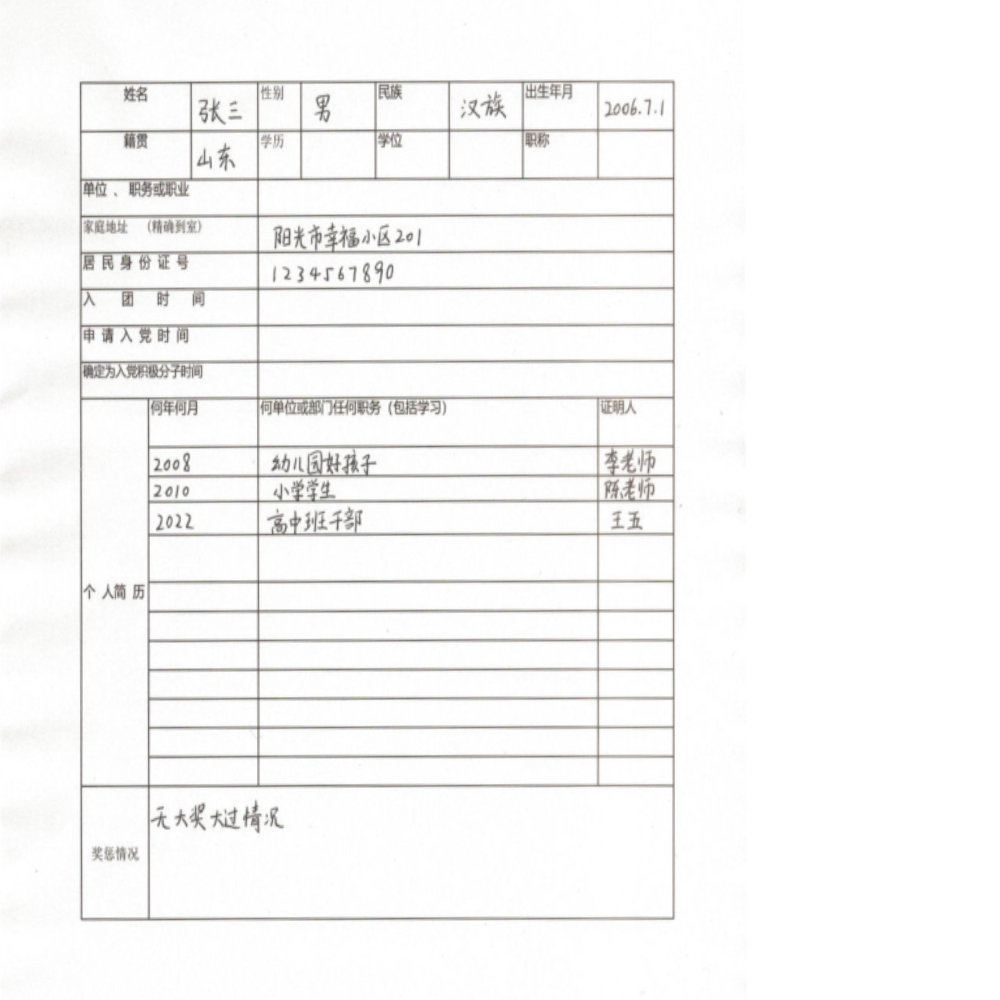 姓名 张三 性别 男 民族 汉族 出生年月 2006.7.1
籍贯 山东 学历 学位 职称
单位、职务或职业
家庭地址 (精确到室) 阳光市幸福小区201
居民身份证号 1234567890
入团时间
申请入党时间
确定为入党积极分子时间
何年何月 何单位或部门任何职务(包括学习) 证明人
2008 幼儿园好孩子 李老师
2010 小学学生 陈老师
2022 高中班干部 王五
个人简历
无大奖大过情况
奖惩情况